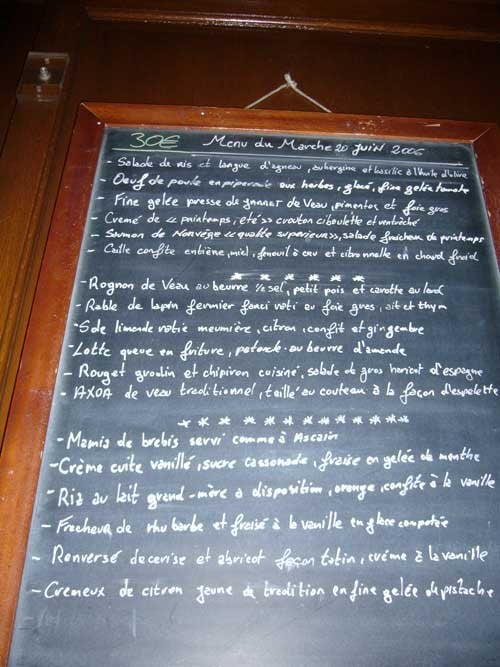 30€ Menu du Marche 20 Juin 2006
- Salade de ris et langue d'agneau, aubergine et basilic à l'huile d'olive
- Oeuf de poule en piperade aux herbes, glacé, fine gelée tomate
- Fine gelée presse de jarret de veau, pimentos et foie gras
- Cremé de << printemps, été >> crouton ciboulette et ventrèche
- Saumon de Norvège << qualité superieur >>, salade fraicheur de printemps
- Caille confite entière, miel, fenouil à cru et citronnelle en chaud froid
* * * * * *
- Rognon de Veau au beurre ½ sel, petit pois et carotte au lard
- Rable de lapin fermier farci roti au foie gras, ail et thym
- Sole limande rotie meunière, citron, confit et gingembre
- Lotte queue en friture, au beurre d'amande
- Rouget grondin et chipiron cuisiné, salade de gros haricot d'espagne
- AXOA de veau traditionnel, taillé au couteau à la façon d'espelette
* * * * * * * * * * * *
- Mamia de brebis servi comme à Ascain
- Crème cuite vanillé, sucre cassonade, fraise en gelée de menthe
- Riz au lait grand-mère a disposition, orange, confite à la vanille
- Fracheur de rhubarbe et fraise à la vanille en glace compotée
- Renversé de cerise et abricot façon tatin, crème à la vanille
- Cremeux de citron jaune de tradition en fine gelée de pistache